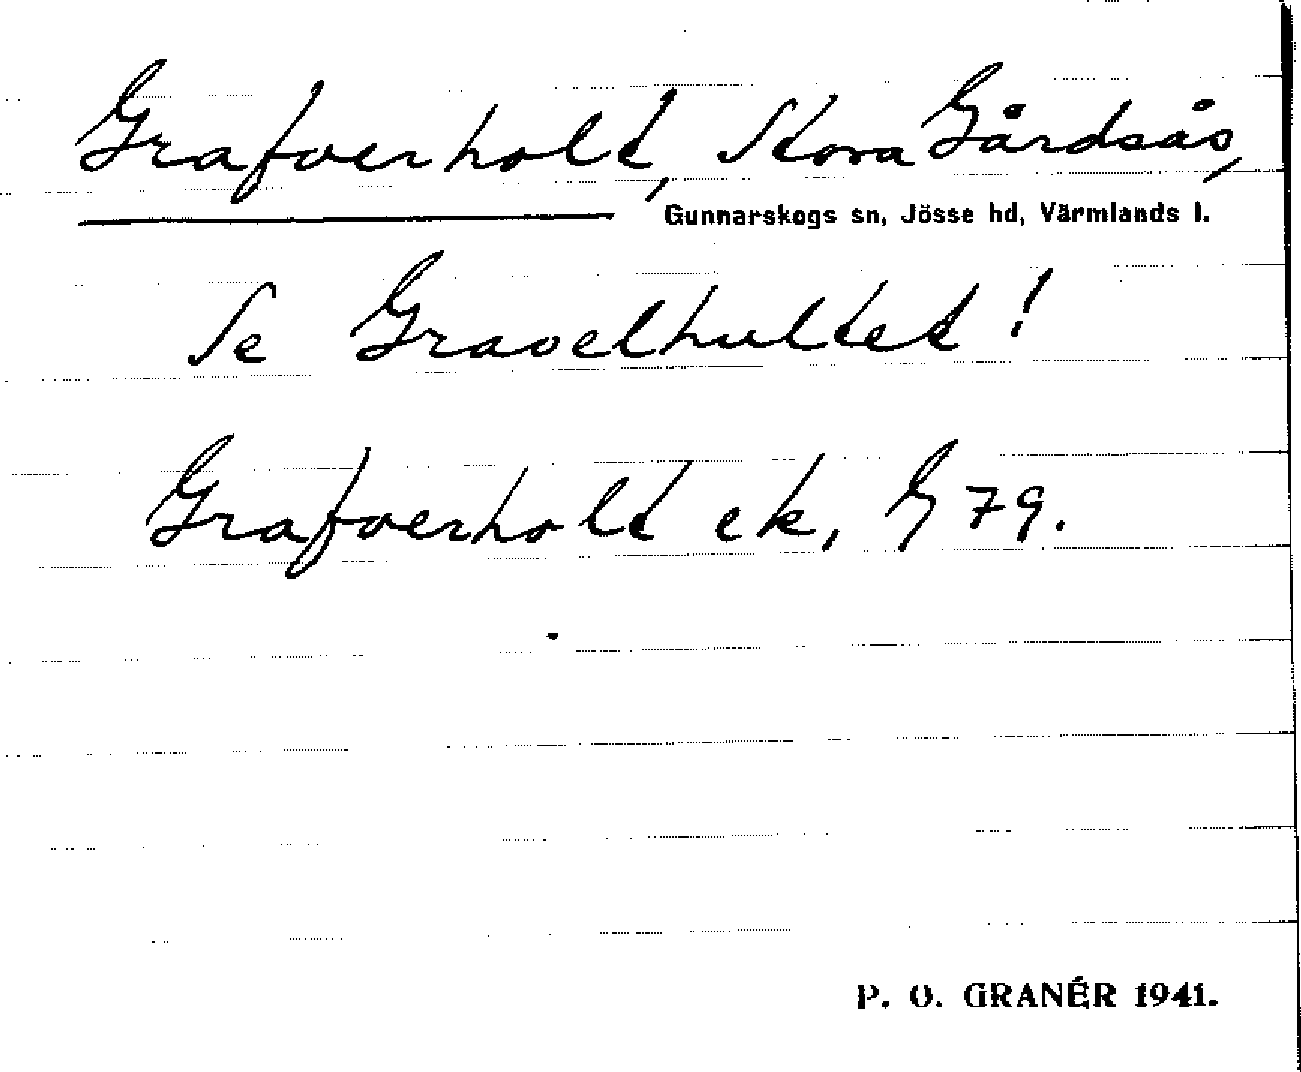 Grafverholt, Stora Gårdsås,
Gunnarskogs sn, Jösse hd, Värmlands l.
Se Gravelhultet!
Grafverholt ek, G 79.
P. O. GRANÉR 1941.